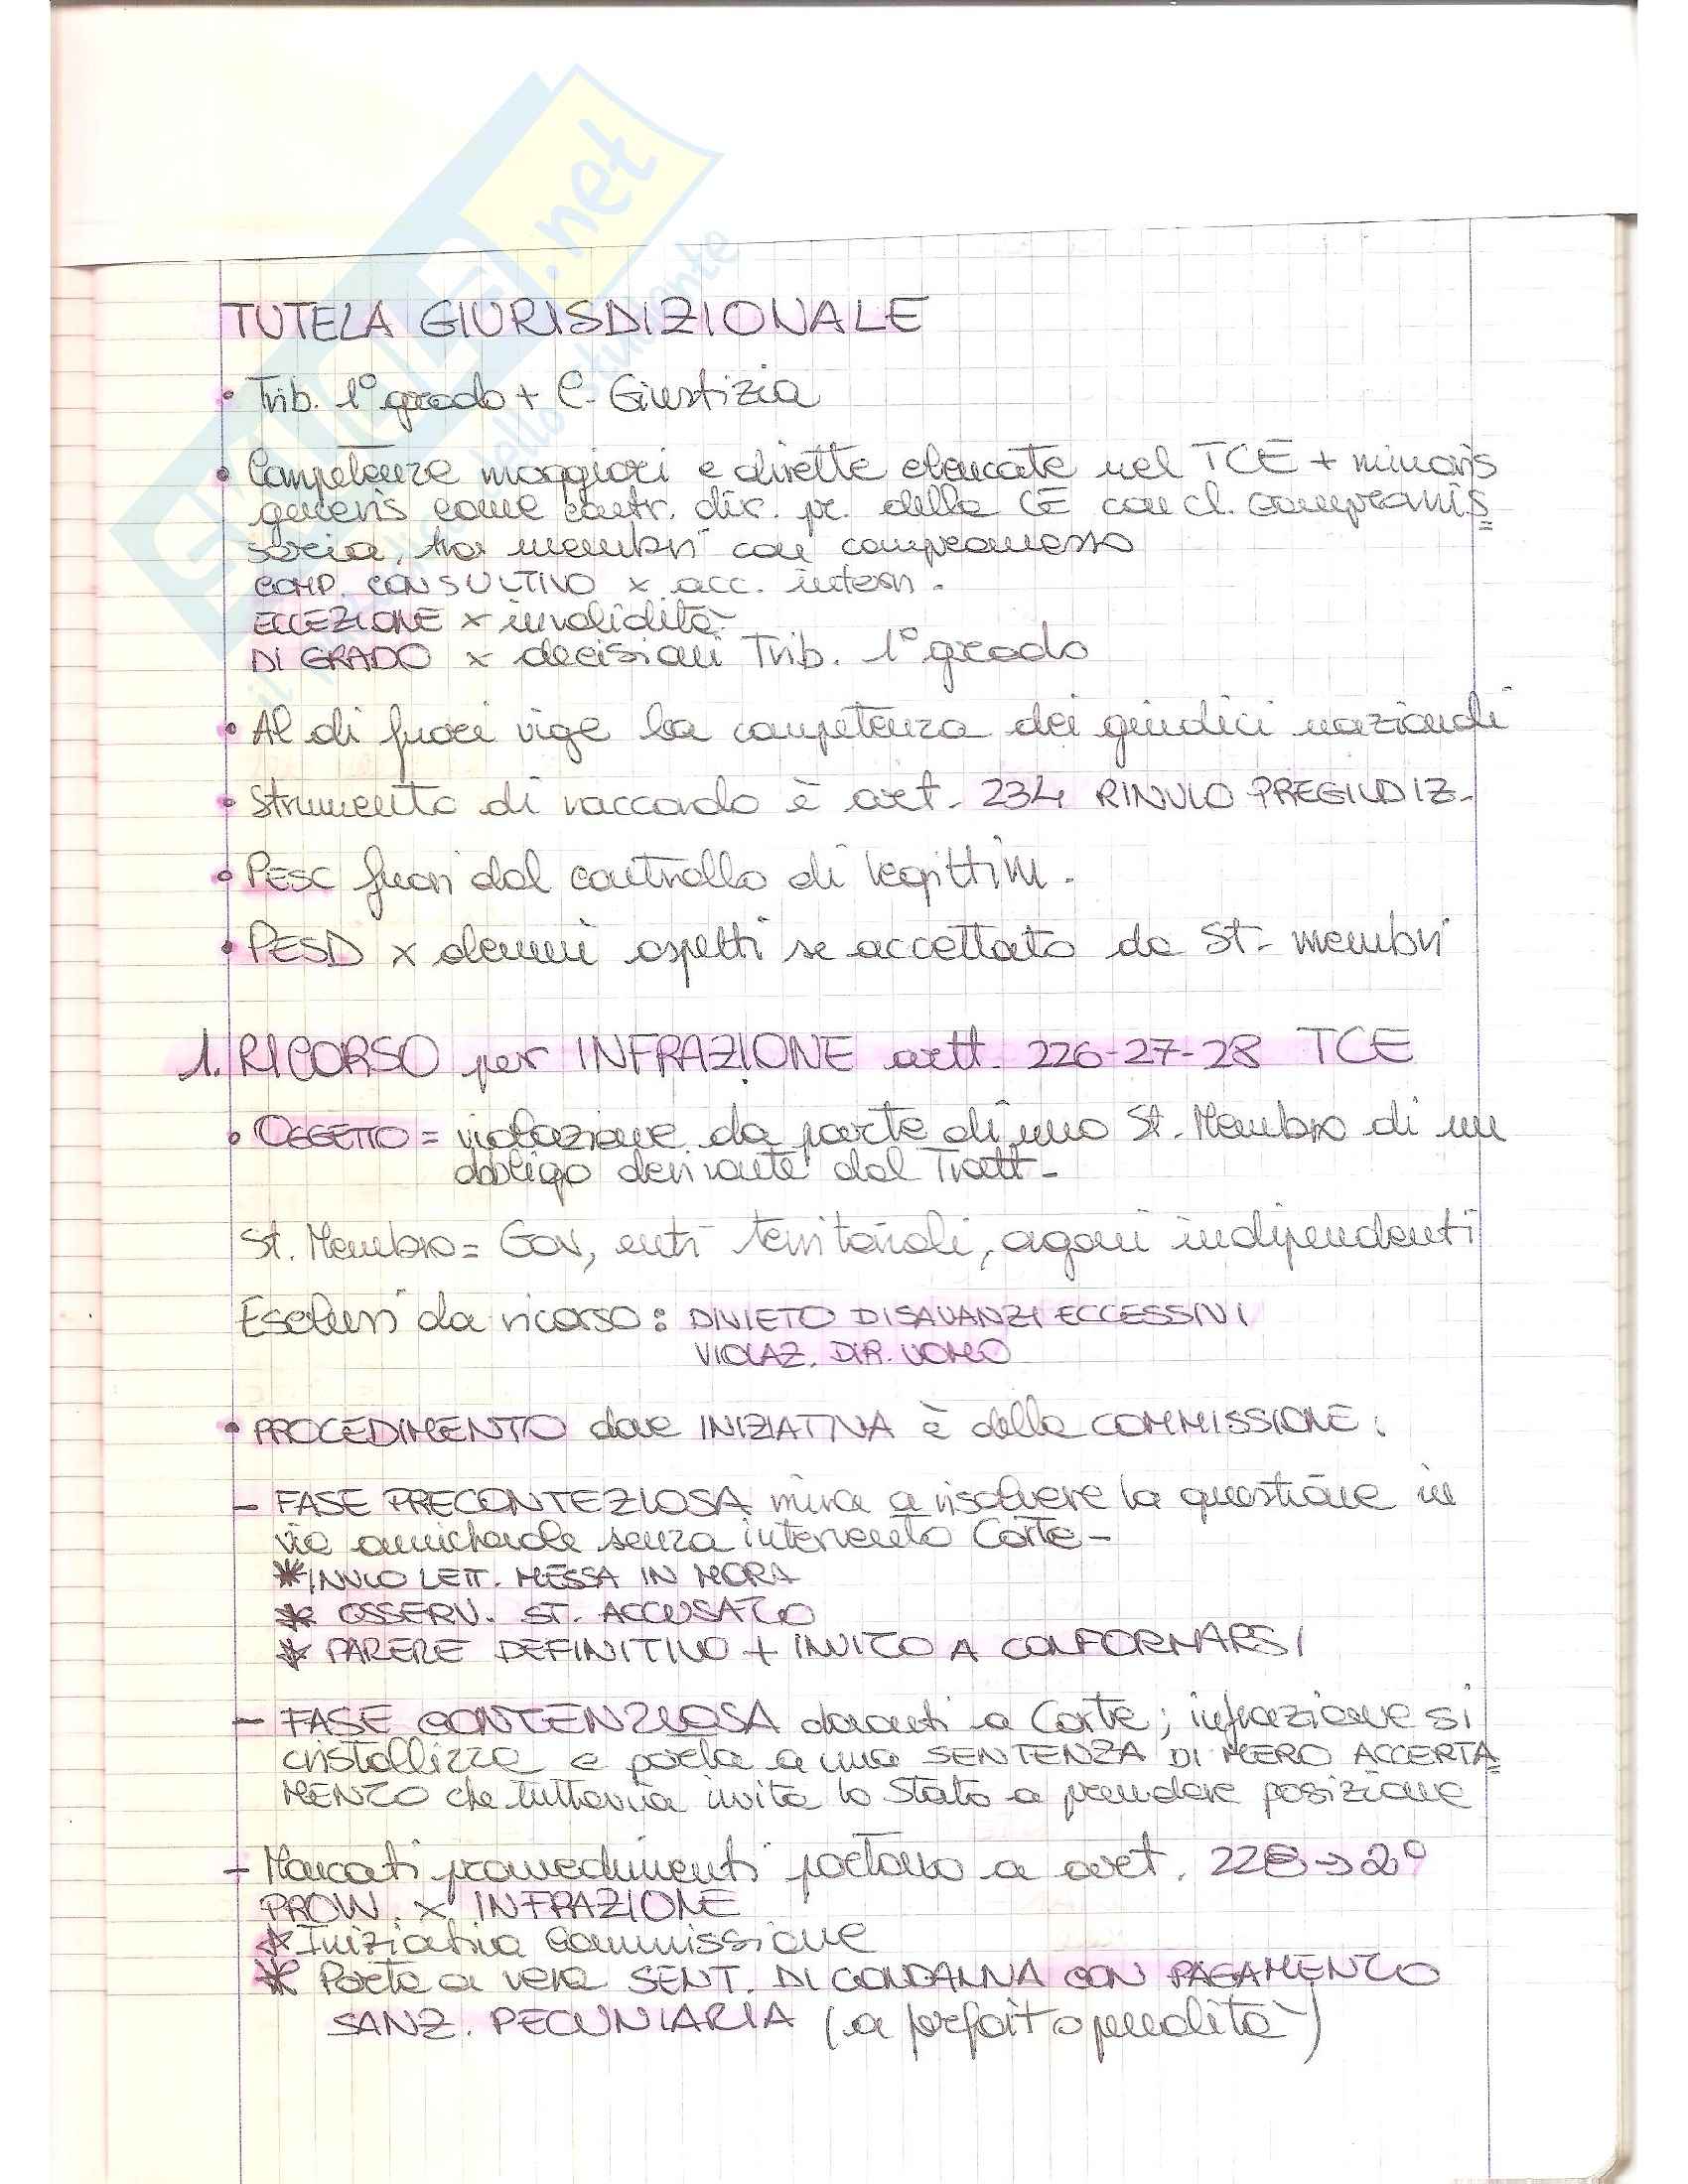 TUTELA GIURISDIZIONALE
• Trib. 1° grado + C. Giustizia
• Competenze maggiori e dirette elencate nel TCE + minoris
generis come contr. dir. pr. della CE con cl. compromis
soria, tra membri con compromesso
COMP. CONSULTIVO x acc. intern.
ECCEZIONE x invalidità
DI GRADO x decisioni Trib. 1° grado
• Al di fuori vige la competenza dei giudici nazionali
• Strumento di raccordo è art. 234 RINVIO PREGIUDIZ.
• PESC fuori dal controllo di legittim.
• PESD x alcuni aspetti se accettato da St. membri
1. RICORSO per INFRAZIONE artt. 226-27-28 TCE
• OGGETTO = violazione da parte di uno St. Membro di un
obbligo derivante dal Tratt.
St. Membro = Gov, enti territoriali, organi indipendenti
Esclusi da ricorso: DIVIETO DISAVANZI ECCESSIVI
VIOLAZ. DIR. UOMO
• PROCEDIMENTO dove INIZIATIVA è della COMMISSIONE:
- FASE PRECONTEZIOSA mira a risolvere la questione in
via amichevole senza intervento Corte -
* INVIO LETT. MESSA IN MORA
* OSSERV. ST. ACCUSATO
* PARERE DEFINITIVO + INVITO A CONFORMARSI
- FASE CONTENZIOSA davanti a Corte; infrazione si
cristallizza e porta a una SENTENZA DI MERO ACCERTA
MENTO che tuttavia invita lo Stato a prendere posizione
- Mancati provvedimenti portano a art. 228 → 2°
PROVV. x INFRAZIONE
* Iniziativa Commissione
* Porta a vera SENT. DI CONDANNA CON PAGAMENTO
SANZ. PECUNIARIA (a forfait o penalità)
.net